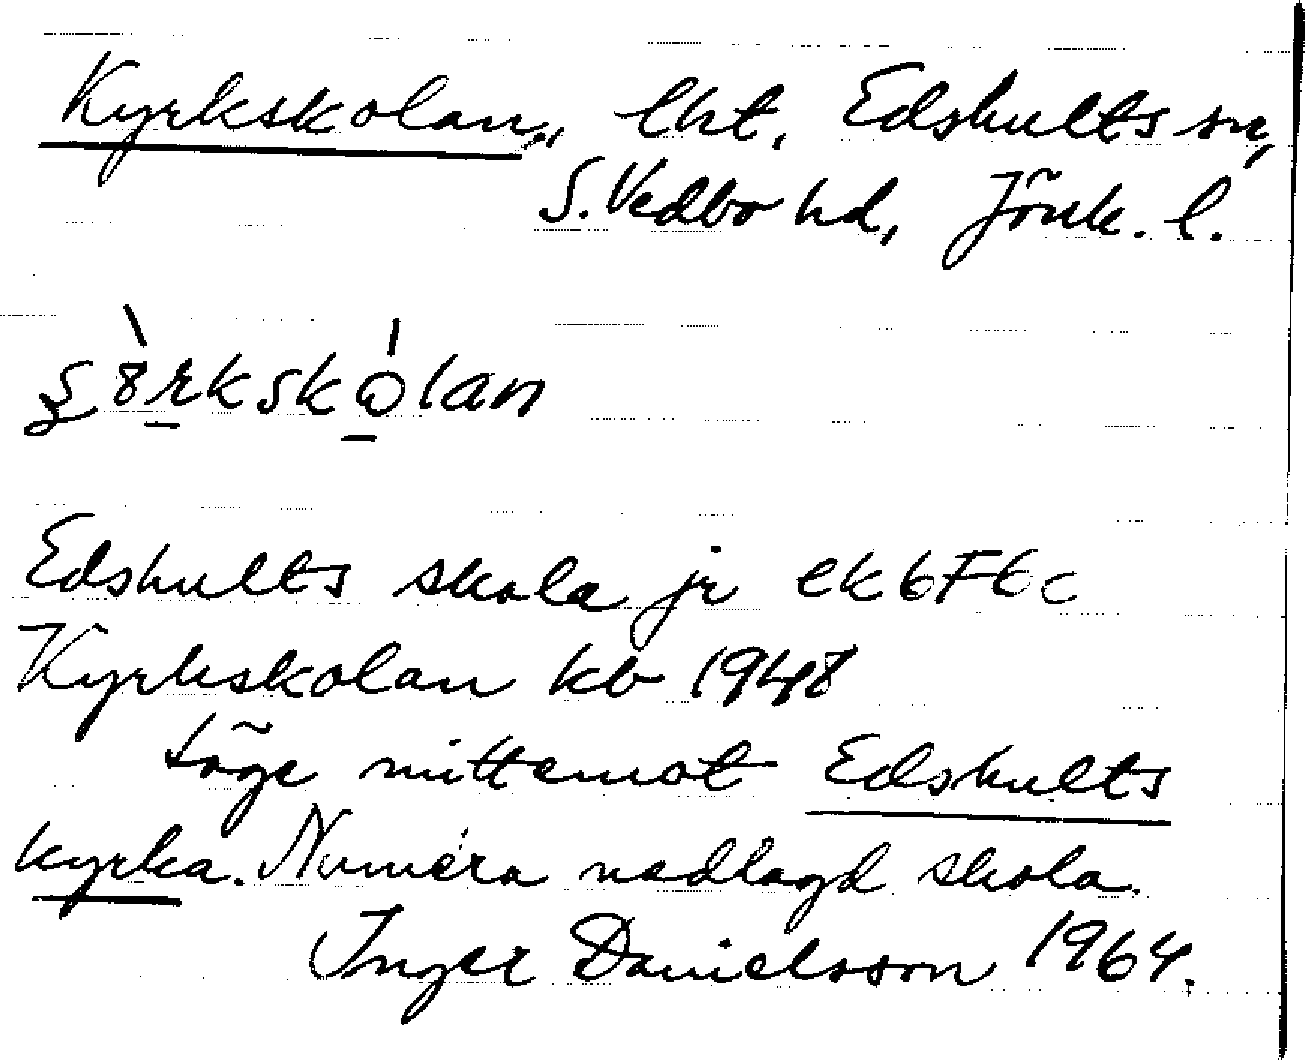 Kyrkskolan, lht, Edshults sn,
S. Vedbo hd, Jönk. l.
Edshults skola jr ek 6F6c
Kyrkskolan kb 1948
läge mittemot Edshults
kyrka. Numera nedlagd skola.
Inger Danielsson 1964.